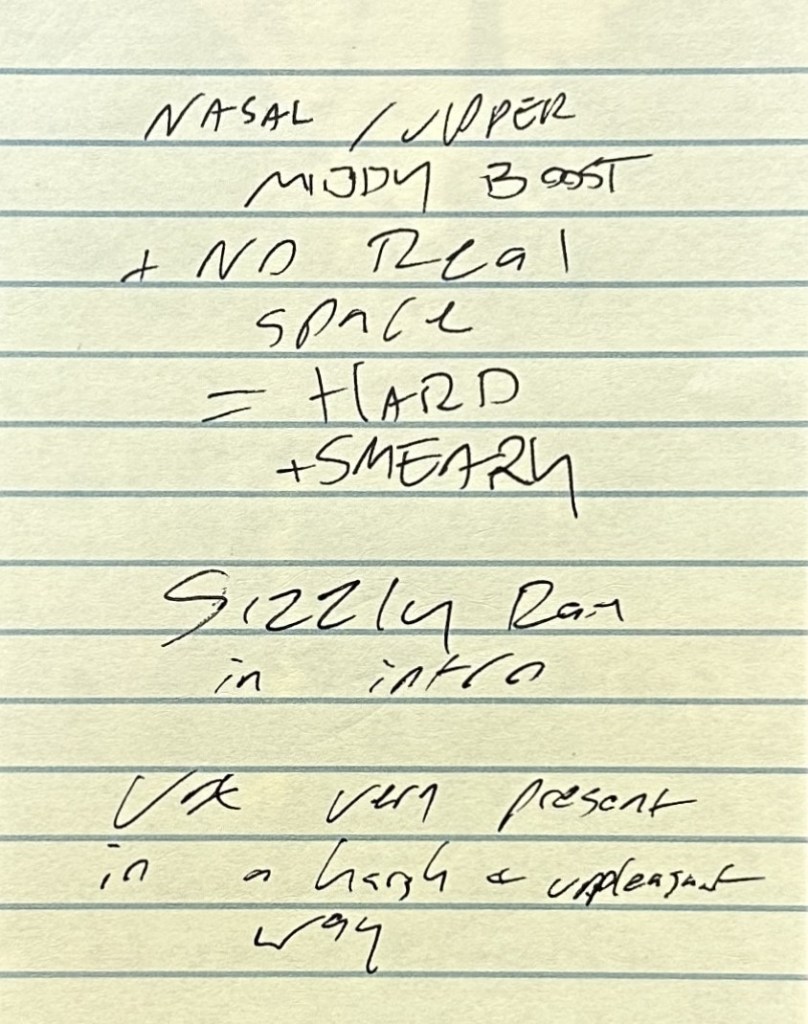 NASAL / UPPER
MIDDY BOOST
+ NO Real
space
= HARD
+ SMEARY
Sizzly Rain
in intro
Vox very present
in a harsh & unpleasant
way